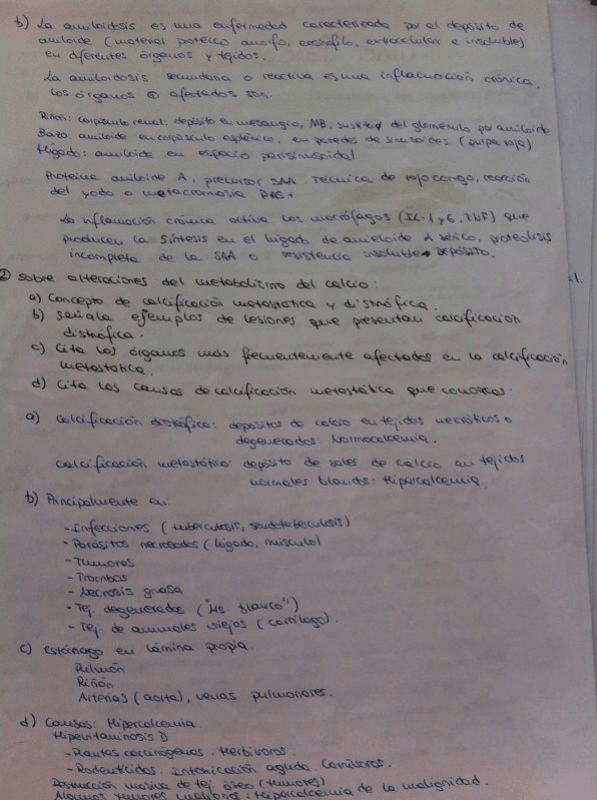 b) La amiloidosis es una enfermedad caracterizada por el depósito de
amiloide (material proteico amorfo, eosinófilo, extracelular e insoluble)
en diferentes órganos y tejidos.
La amiloidosis secundaria o reactiva es una inflamación crónica.
Los órganos ⊕ afectados son:
Riñón: corpúsculo renal: depósito en mesangio, MB, del glomérulo por amiloide
Bazo: amiloide en corpúsculo esplénico, en paredes de sinusoides (pulpa roja)
Hígado: amiloide en espacio perisinusoidal
Proteína amiloide A, precursor SAA. Técnica de rojo congo, reacción
del yodo o metacromasia PAS+
La inflamación crónica activa los macrófagos (IL-1 y 6, TNF) que
producen la síntesis en el hígado de amieloide A sérico, proteolisis
incompleta de la SAA o resistencia insoluble depósito.
② Sobre alteraciones del metabolismo del calcio:
a) Concepto de calcificación metastática y distrófica.
b) Señala ejemplos de lesiones que presentan calcificación
distrófica.
c) Cita los órganos más frecuentemente afectados en la calcificación
metastática.
d) Cita las causas de calcificación metastática que conozcas.
a) Calcificación distrófica: depósitos de calcio en tejidos necróticos o
degenerados: Normocalcemia.
Calcificación metastática: depósito de sales de calcio en tejidos
normales blandos: Hipercalcemia
b) Principalmente en:
- Infecciones (tuberculosis, seudotuberculosis)
- Parásitos necrosados (hígado, músculo)
- Tumores
- Trombos
- Necrosis grasa
- Tej. degenerados ("Ms. blanco")
- Tej. de animales viejos (cartílago).
c) Estómago en lámina propia
Pulmón
Riñón
Arterias (aorta), venas pulmonares.
d) Causas: Hipercalcemia.
Hipervitaminosis D
- Plantas carcinógenas. Herbívoros.
- Rodenticidas. Intoxicación aguda. Carnívoros.
Destrucción masiva de tej. óseo (tumores)
Algunos tumores malignos: Hipercalcemia de la malignidad.